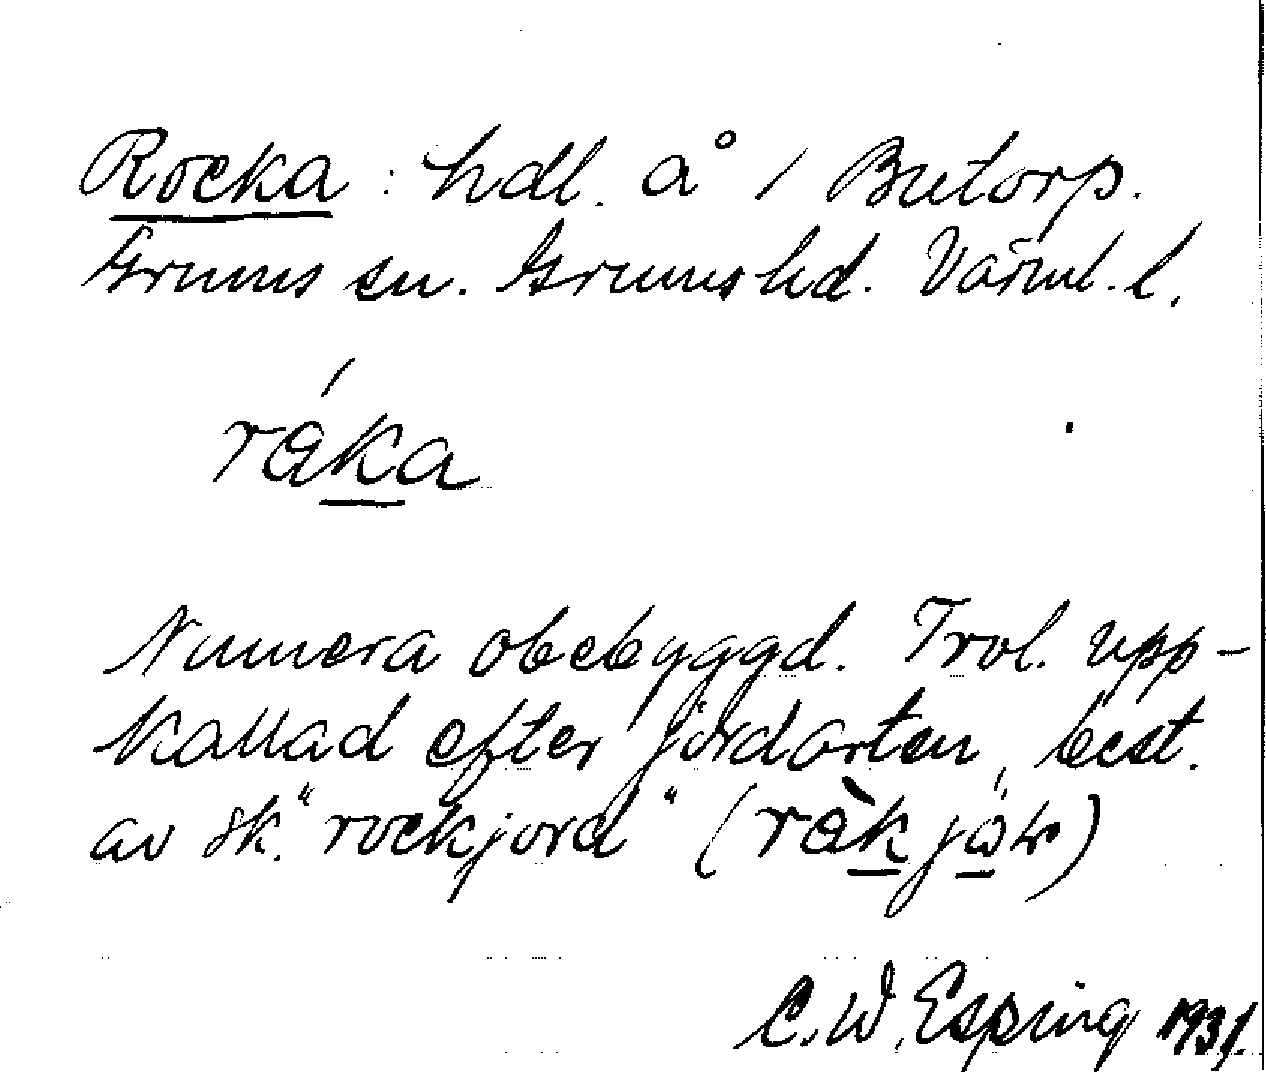 Rocka : hdl. å 1 Butorp.
Grums sn. Grums hd. Värml. l.
råka
Numera obebyggd. Trol. upp-
kallad efter jordarten, best.
av sk. "rockjord" (
C. W. Esping 1931.